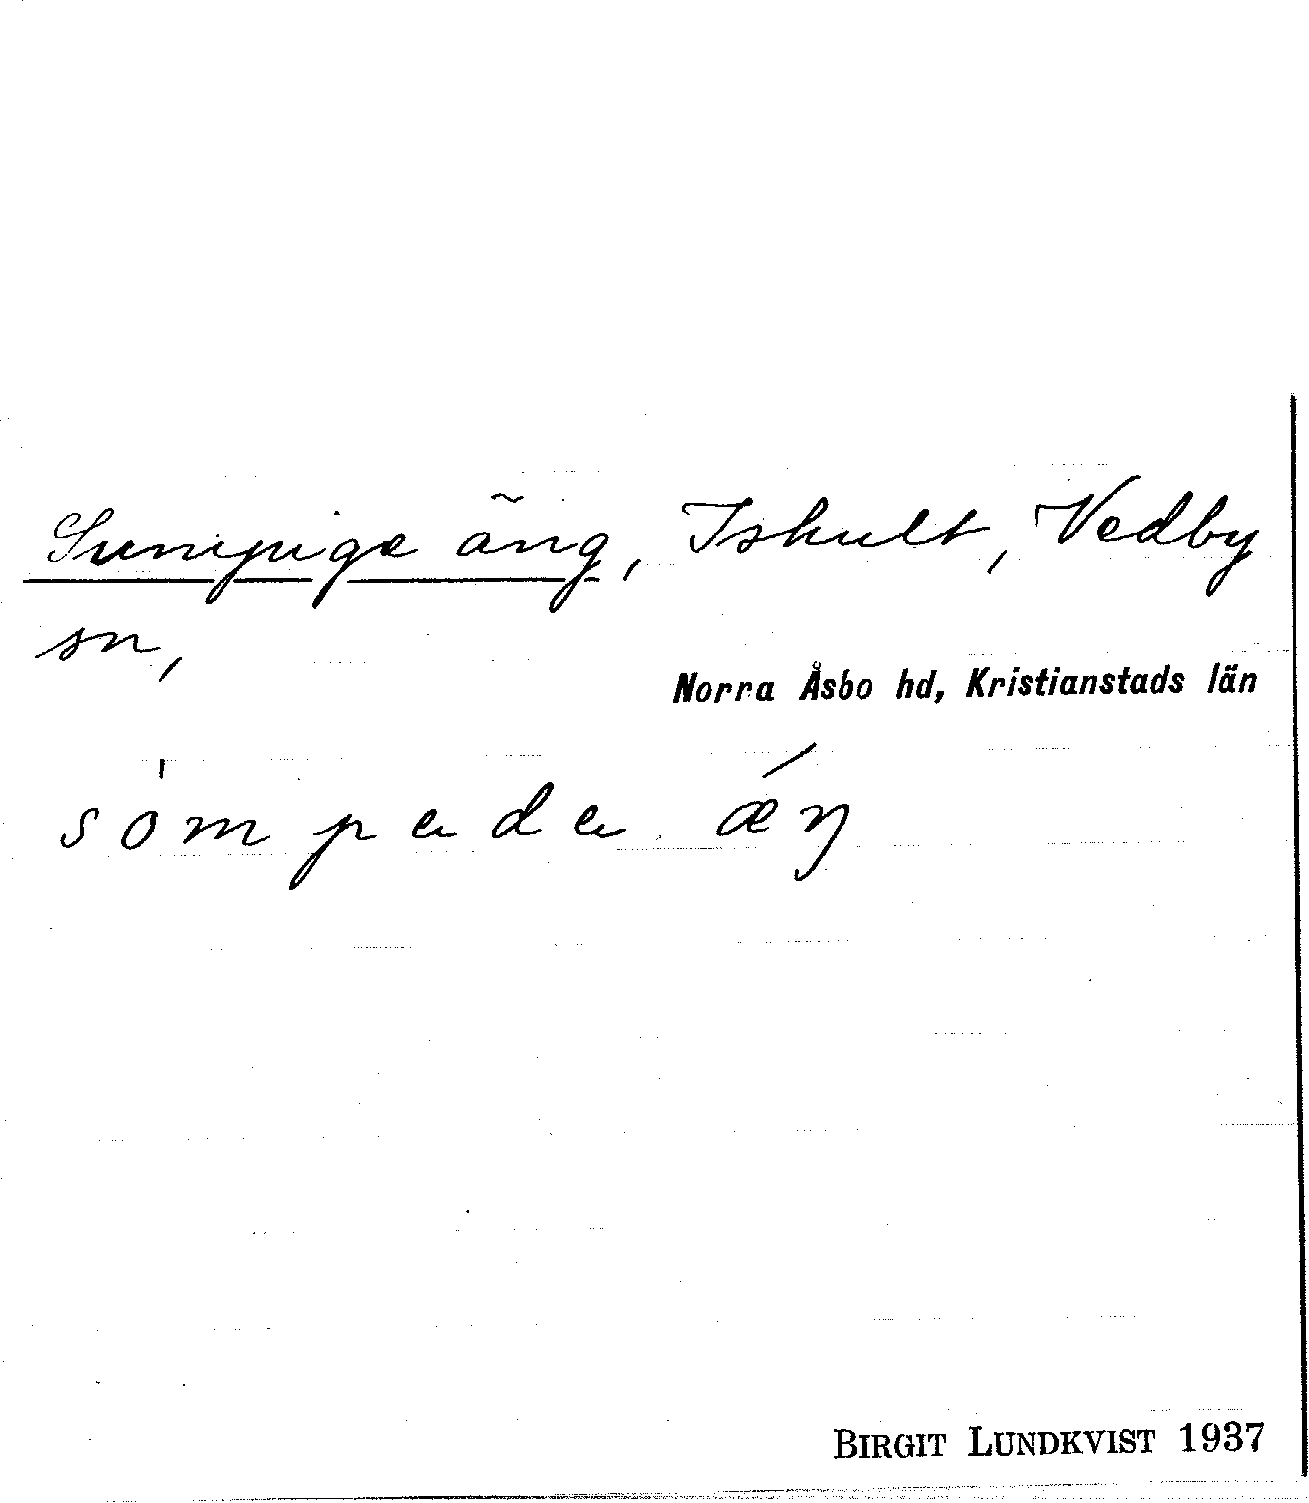 Sumpige äng, Iskult, Vedby
sn,
Norra Åsbo hd, Kristianstads län
sòmpada ǽŋ
BIRGIT LUNDKVIST 1937